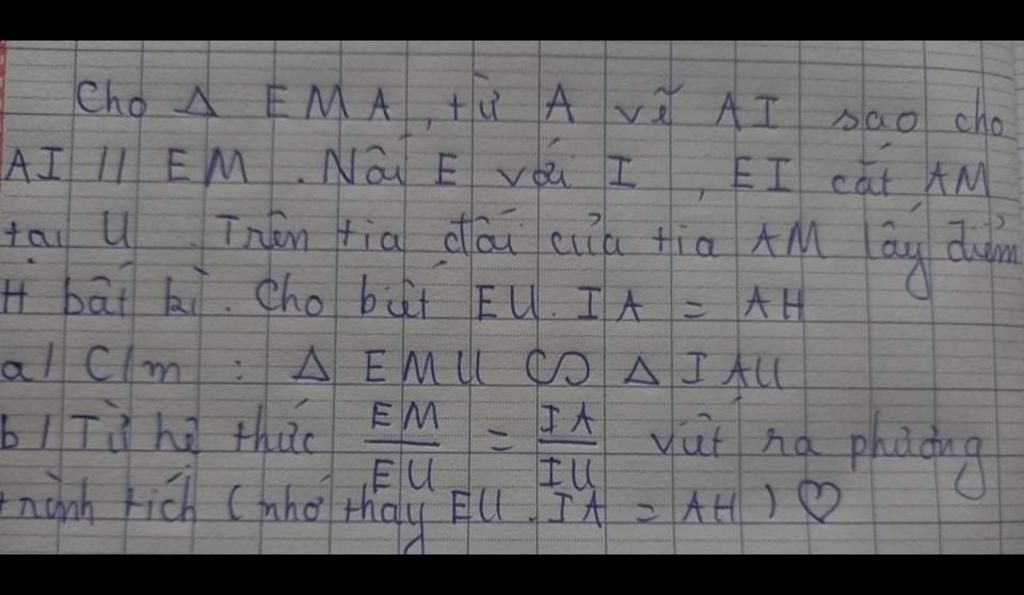 Cho Δ EMA, từ A vẽ AI sao cho
AI // EM. Nối E với I, EI cắt AM
tại U. Trên tia đối của tia AM lấy điểm
H bất kì. Cho biết EU. IA = AH
a/ C/m : Δ EMU ∽ Δ IAU
b/ Từ hệ thức EM/EU = IA/IU viết ra phương
trình tích (nhớ thay EU. IA = AH) ♡